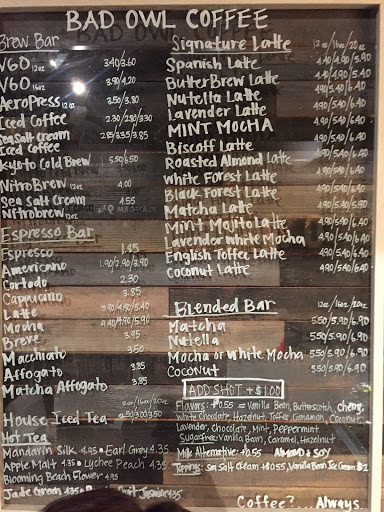 BAD OWL COFFEE
Brew Bar
V60 12oz 3.40 3.60
V60 16oz 3.90/4.20
AeroPress 12oz 3.50/3.80
Iced Coffee 2.30/2.80/3.30
Sea Salt Cream
Iced Coffee 2.85/3.35/3.85
Kyoto Cold Brew 5.50/6.50
NitroBrew 12oz 4.00
Sea Salt Cream
Nitrobrew 12oz 4.55
Espresso Bar
Espresso 1.95
Americano 1.90/2.90/3.90
Cortado 2.30
Cappucino 3.85
Latte 3.90/4.50/5.40
Mocha 4.40/4.90/5.90
Breve 3.95
Macchiato 3.50
Affogato 3.85
Matcha Affogato 3.85
House Iced Tea 2.50/3.00/3.50
Hot Tea
Mandarin Silk 4.95 • Earl Grey 4.35
Apple Malt 4.35 • Lychee Peach 4.35
Blooming Beach Flower 4.95
Jade Green 4.35
Signature Latte 12oz/16oz/20oz
Spanish Latte 4.40/4.90/5.90
ButterBrew Latte 4.40/4.90/5.90
Nutella Latte 4.90/5.40/6.40
Lavender Latte 4.90/5.40/6.40
MINT MOCHA 4.90/5.40/6.40
Biscoff Latte 4.90/5.40/6.40
Roasted Almond Latte 4.90/5.40/6.40
White Forest Latte 4.90/5.40/6.40
Black Forest Latte 4.90/5.40/6.40
Matcha Latte 4.90/5.40/6.40
Mint Mojito Latte 4.90/5.40/6.40
Lavender White Mocha 4.90/5.40/6.40
English Toffee Latte 4.90/5.40/6.40
Coconut Latte 4.90/5.40/6.40
Blended Bar 12oz/16oz/20oz
Matcha 5.50/5.90/6.90
Nutella 5.50/5.90/6.90
Mocha or White Mocha 5.50/5.90/6.90
Coconut 5.50/5.90/6.90
ADD SHOT +$1.00
Flavors: +0.55 = Vanilla Bean, Butterscotch, Cherry,
White Chocolate, Hazelnut, Toffee, Cinnamon, Coconut,
Lavender, Chocolate, Mint, Peppermint
Sugarfree: Vanilla Bean, Caramel, Hazelnut
Milk Alternative: +0.55 ALMOND & SOY
Topping: Sea Salt Cream +$0.55, Vanilla Bean Ice Cream $2
Coffee?... Always.